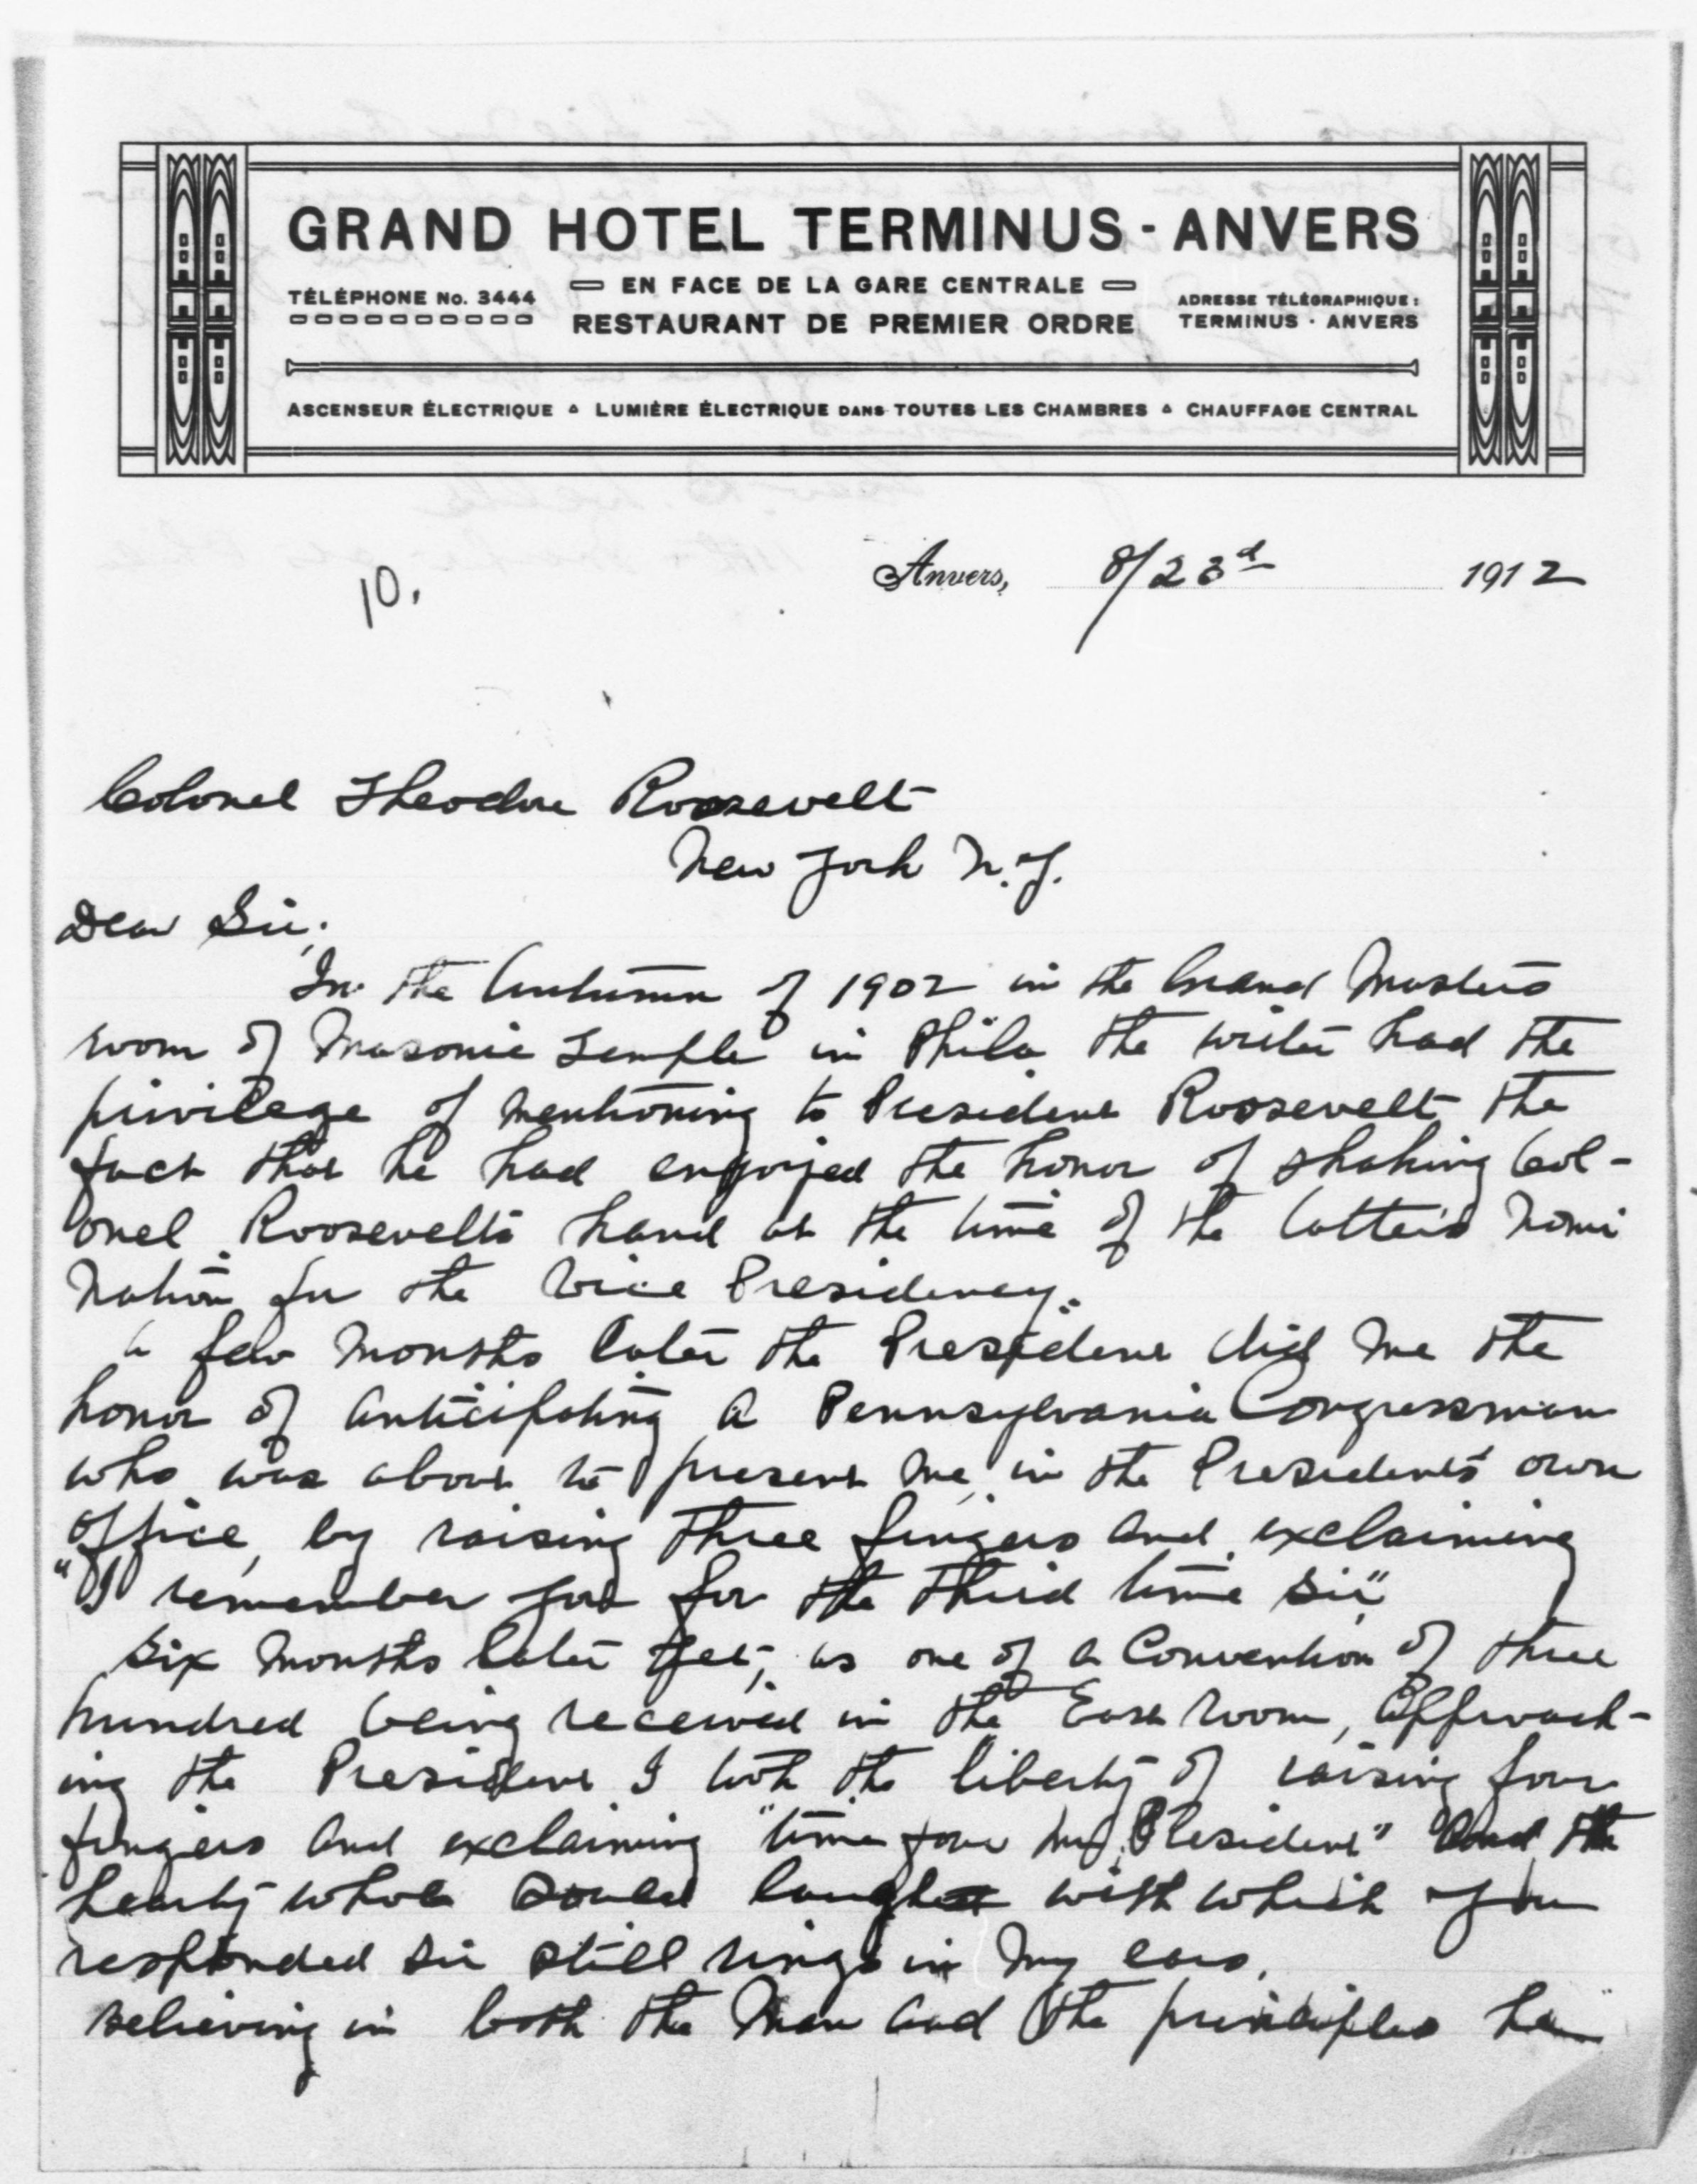 GRAND HOTEL TERMINUS - ANVERS
EN FACE DE LA GARE CENTRALE
TÉLÉPHONE No. 3444
RESTAURANT DE PREMIER ORDRE
ADRESSE TÉLÉGRAPHIQUE:
TERMINUS · ANVERS
ASCENSEUR ÉLECTRIQUE LUMIÈRE ÉLECTRIQUE DANS TOUTES LES CHAMBRES CHAUFFAGE CENTRAL
10.
Anvers, 8/23d 1912
Colonel Theodore Roosevelt
New York N.Y.
Dear Sir;
In the Autumn of 1902 in the Grand Masters
room of Masonic Temple in Phila the writer had the
privilege of mentioning to President Roosevelt the
fact that he had enjoyed the honor of shaking Col-
onel Roosevelts hand at the time of the latter's nomi
nation for the Vice Presidency.
A few months later the President did me the
honor of anticipating a Pennsylvania Congressman
who was about to present me, in the Presidents' own
office, by raising three fingers and exclaiming
"I remember you for the third time sir"
Six months later yet, as one of a Convention of three
hundred being received in the East room, approach-
ing the President I took the liberty of raising four
fingers and exclaiming "time four Mr. President" and the
hearty whole souled laugh with which you
responded sir still rings in my ears.
Believing in both the man and the principles he